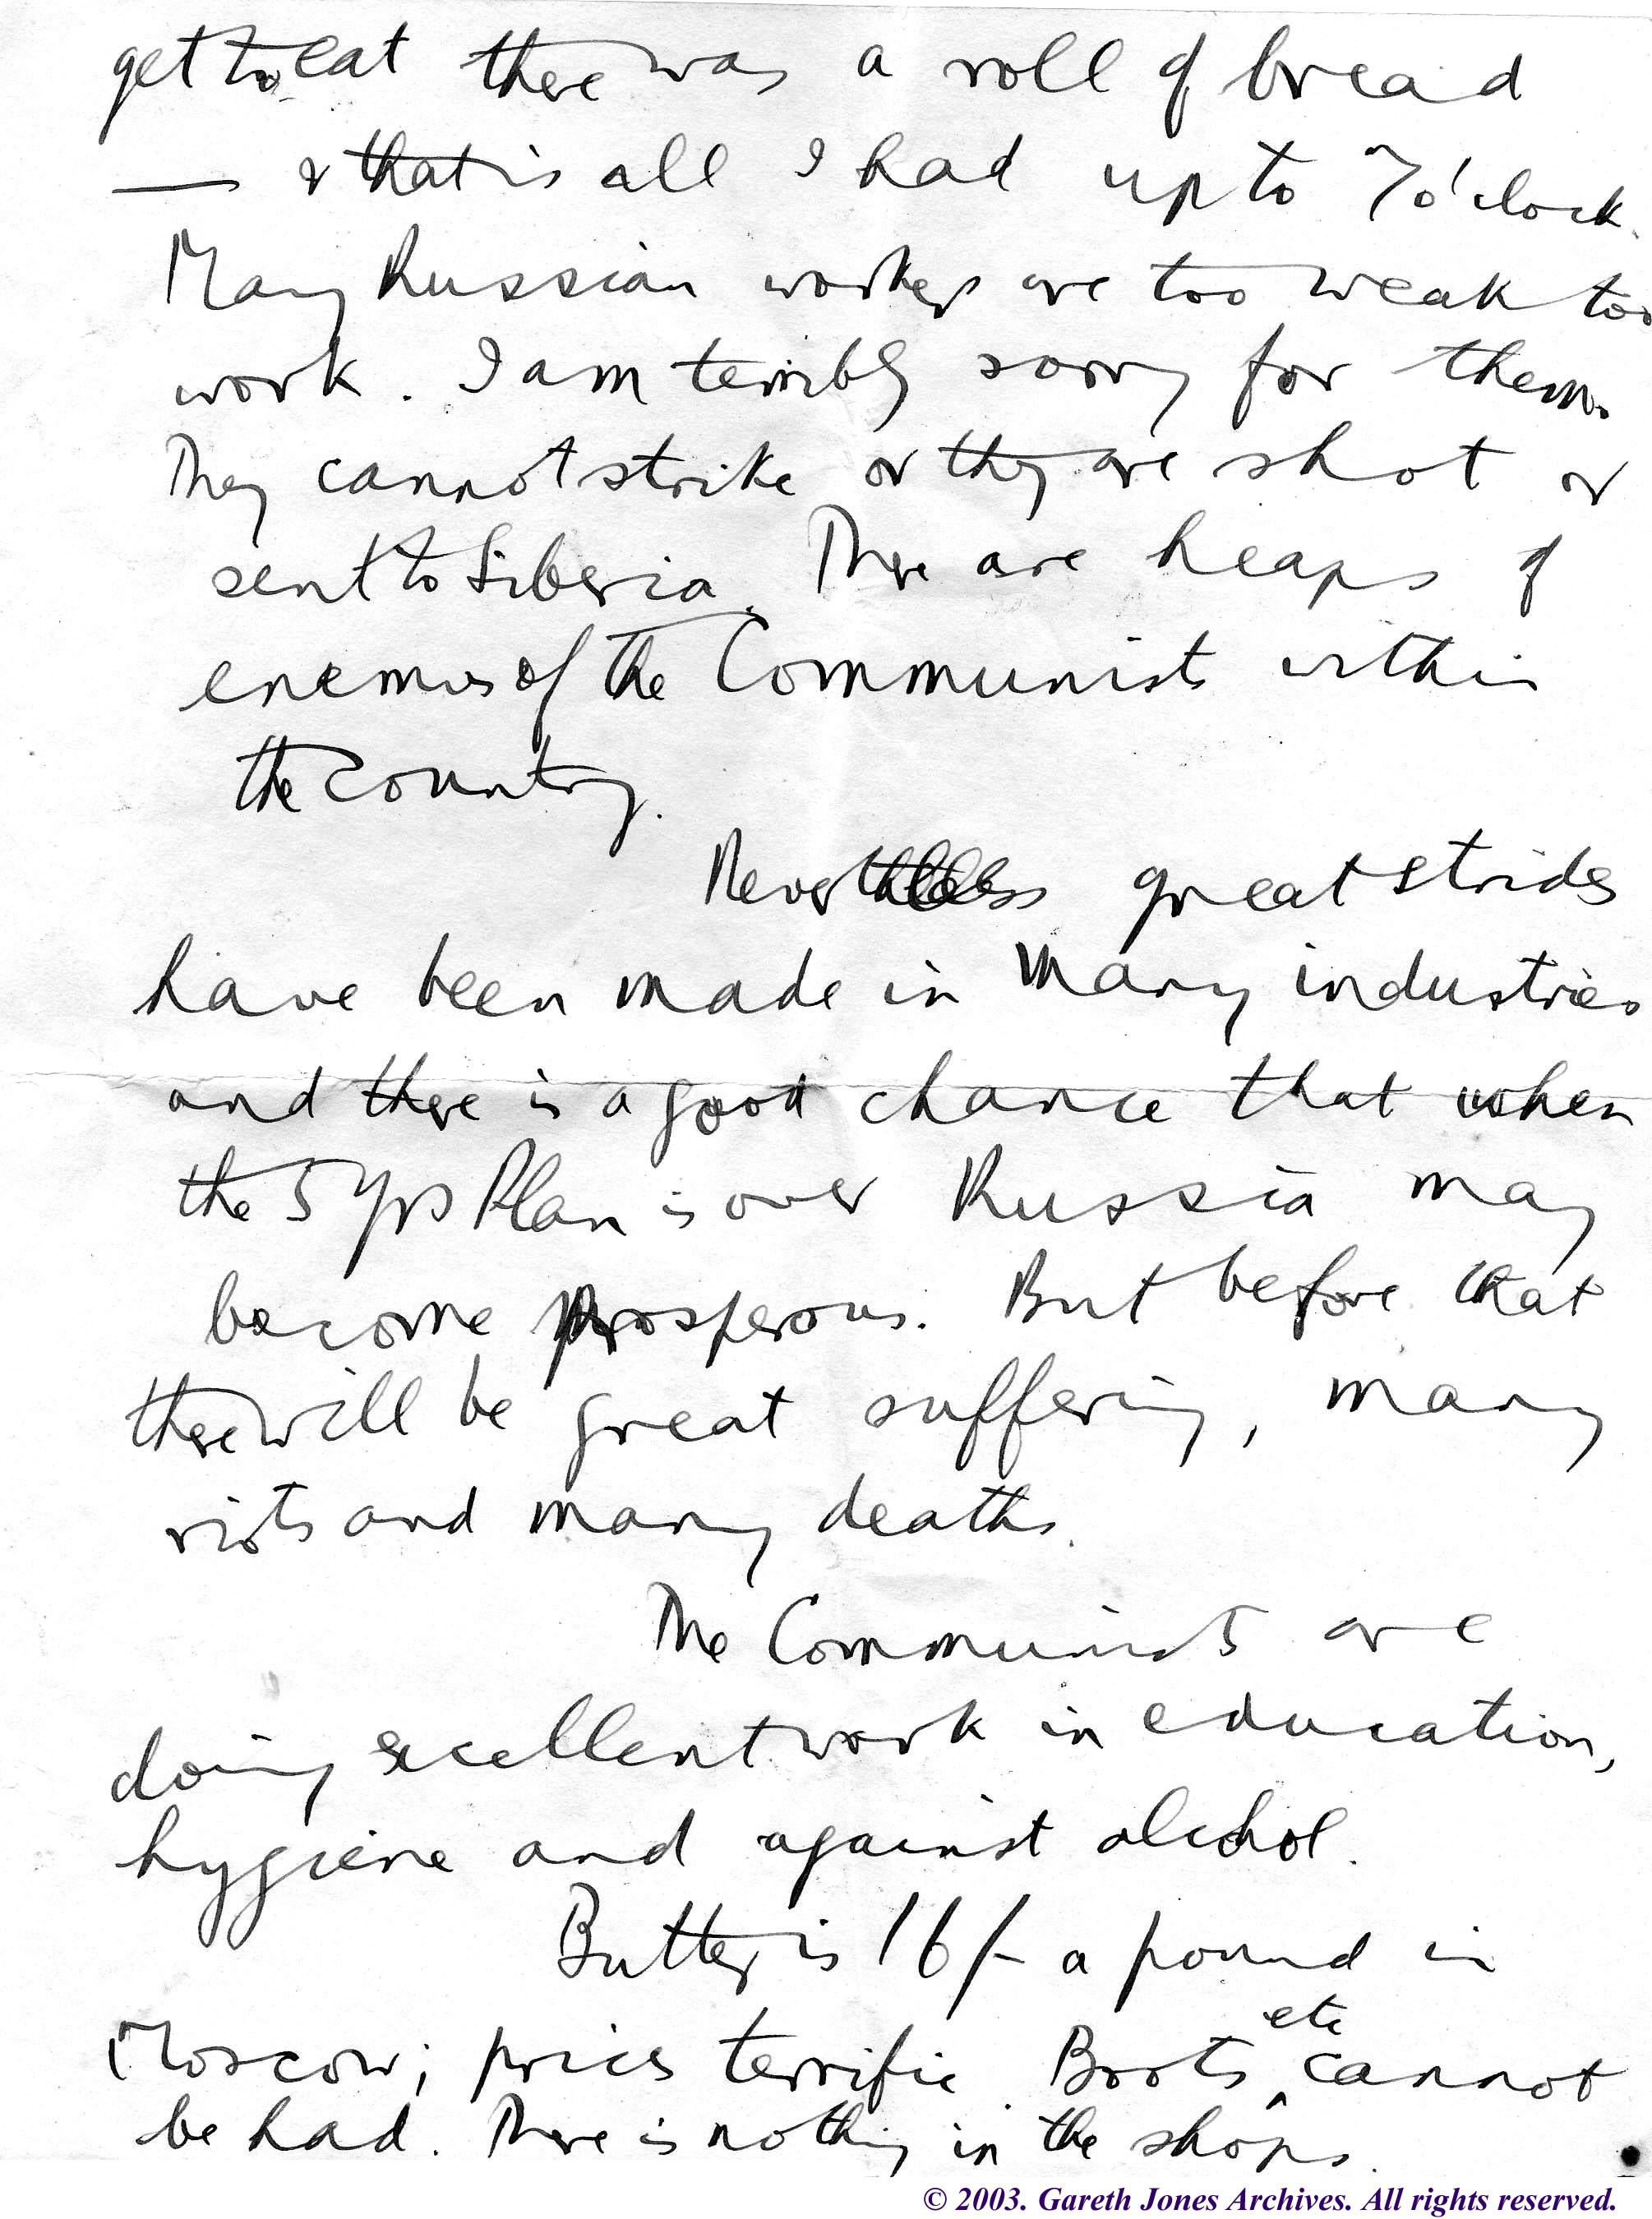 get to eat there was a roll of bread
— & that is all I had up to 7 o'clock.
Many Russian workers are too weak too
work. I am terribly sorry for them.
They cannot strike or they are shot or
sent to Siberia. There are heaps of
enemies of the Communists within
the country.
Nevertheless great strides
have been made in many industries
and there is a good chance that when
the 5 Yrs Plan is over Russia may
become prosperous. But before that
there will be great suffering, many
riots and many deaths.
The Communists are
doing excellent work in education,
hygiene and against alcohol.
Butter is 16/- a pound in
etc
Moscow; prices terrific. Boots ^ cannot
be had. There is nothing in the shops.
© 2003. Gareth Jones Archives. All rights reserved.